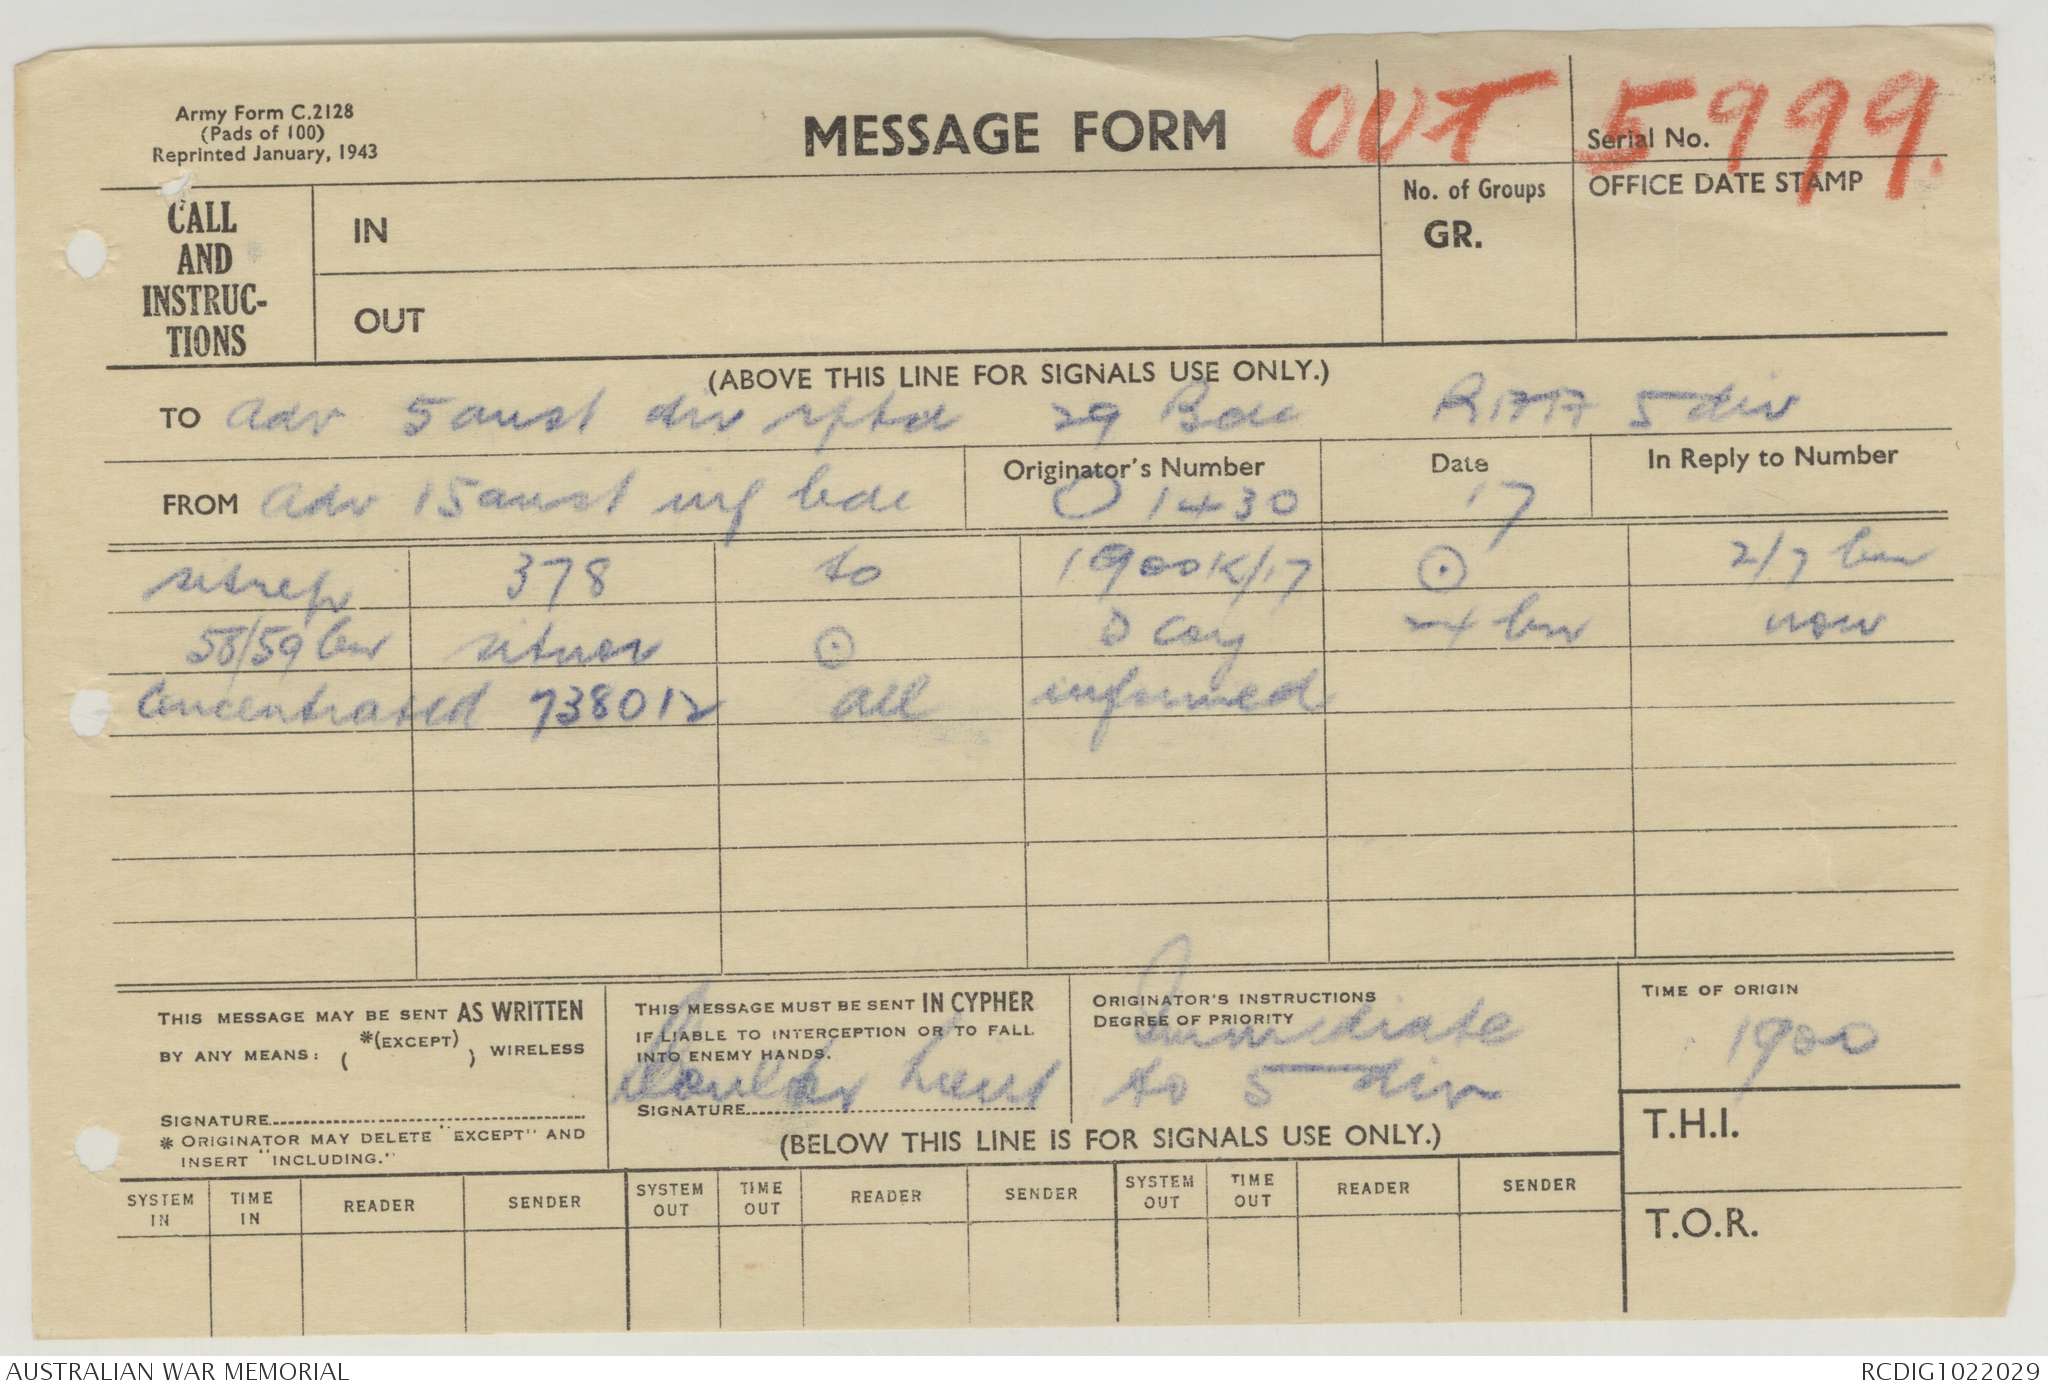 Army Form C.2128
(Pads of 100)
Reprinted January, 1943
MESSAGE FORM
OUT 5999.
Serial No.
CALL AND INSTRUC-TIONS
IN
OUT
No. of Groups
GR.
OFFICE DATE STAMP
(ABOVE THIS LINE FOR SIGNALS USE ONLY.)
TO adv 5 aust div rptd 29 Bde 5 div
FROM adv 15 aust inf bde
Originator's Number
O 1430
Date
17
In Reply to Number
sitrep 378 to 1900K/17 ⊙ 2/7 bn
58/59 bn ⊙ D coy 24 bn now
concentrated 738012 all informed
THIS MESSAGE MAY BE SENT AS WRITTEN
BY ANY MEANS: ( *(EXCEPT) ) WIRELESS
SIGNATURE
* ORIGINATOR MAY DELETE "EXCEPT" AND
INSERT "INCLUDING."
THIS MESSAGE MUST BE SENT IN CYPHER
IF LIABLE TO INTERCEPTION OR TO FALL
INTO ENEMY HANDS.
lieut
SIGNATURE
ORIGINATOR'S INSTRUCTIONS
DEGREE OF PRIORITY
Immediate
to 5 div
TIME OF ORIGIN
1900
T.H.I.
T.O.R.
(BELOW THIS LINE IS FOR SIGNALS USE ONLY.)
SYSTEM IN TIME IN READER SENDER SYSTEM OUT TIME OUT READER SENDER SYSTEM OUT TIME OUT READER SENDER
AUSTRALIAN WAR MEMORIAL
RCDIG1022029